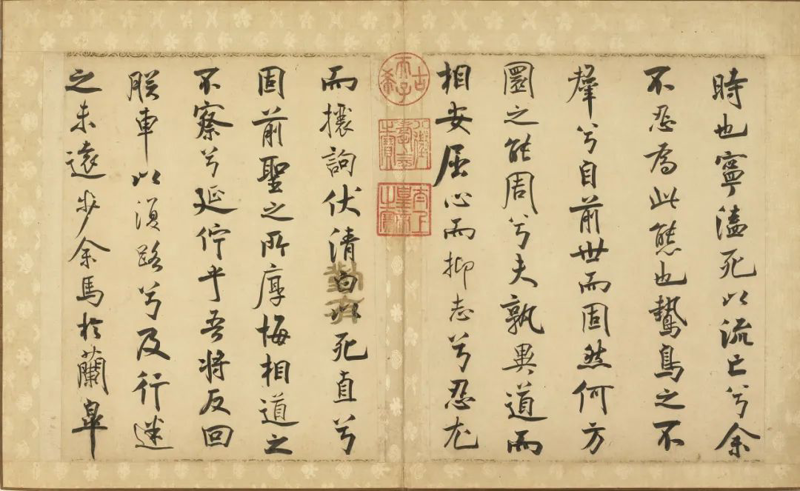 時也寧溘死以流亡兮余
不忍為此態也鷙鳥之不
羣兮自前世而固然何方
圜之能周兮夫孰異道而
相安屈心而抑志兮忍尤
古希天子
八徵耄念之寶
太上皇帝之寶
而攘訽伏清白以死直兮
固前聖之所厚悔相道之
不察兮延佇乎吾將反回
朕車以復路兮及行迷
之未遠步余馬於蘭皋